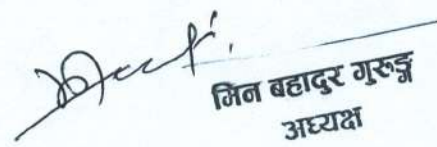 जिन बहादुर गुरुङ्ग
अध्यक्ष